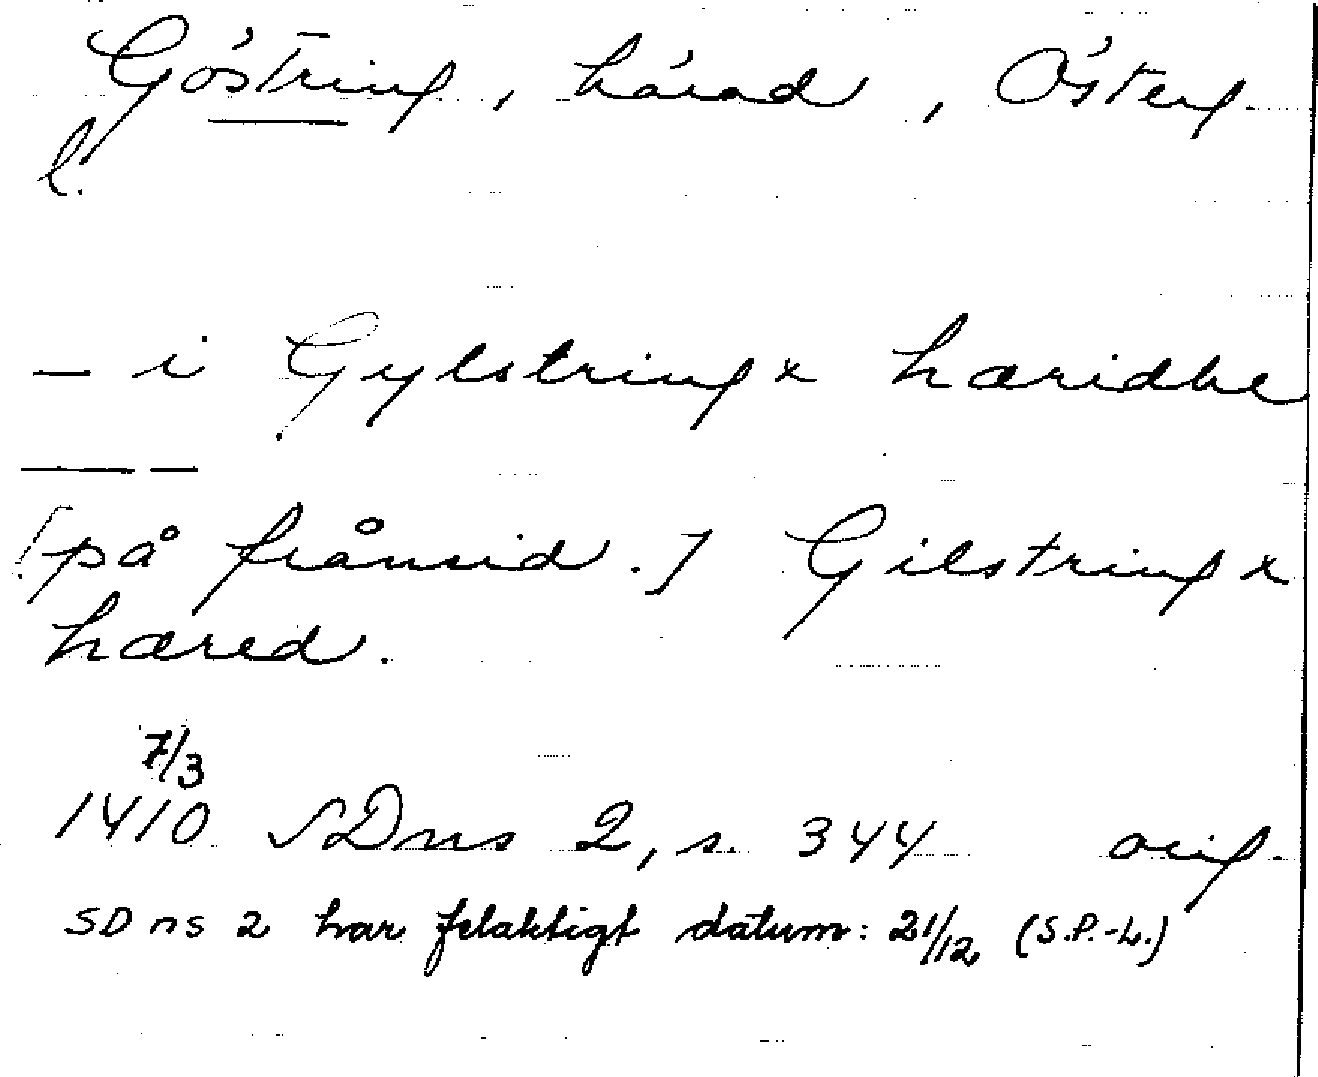 Göstring, härad, Österg.
l.
– i Gylstringx hæridhe
— —
[på frånsid.] Gilstringx
hæred.
7/3
1410 SDns 2, s. 344 orig.
SD ns 2 har felaktigt datum: 21/12 (S.P.-L.)